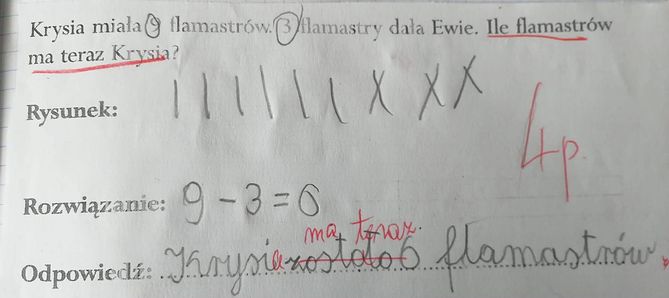 Krysia miała 9 flamastrów. 3 flamastry dała Ewie. Ile flamastrów
ma teraz Krysia?
Rysunek:
4p.
Rozwiązanie: 9 - 3 = 6
ma teraz.
Odpowiedź: Krysia zostało 6 flamastrów.